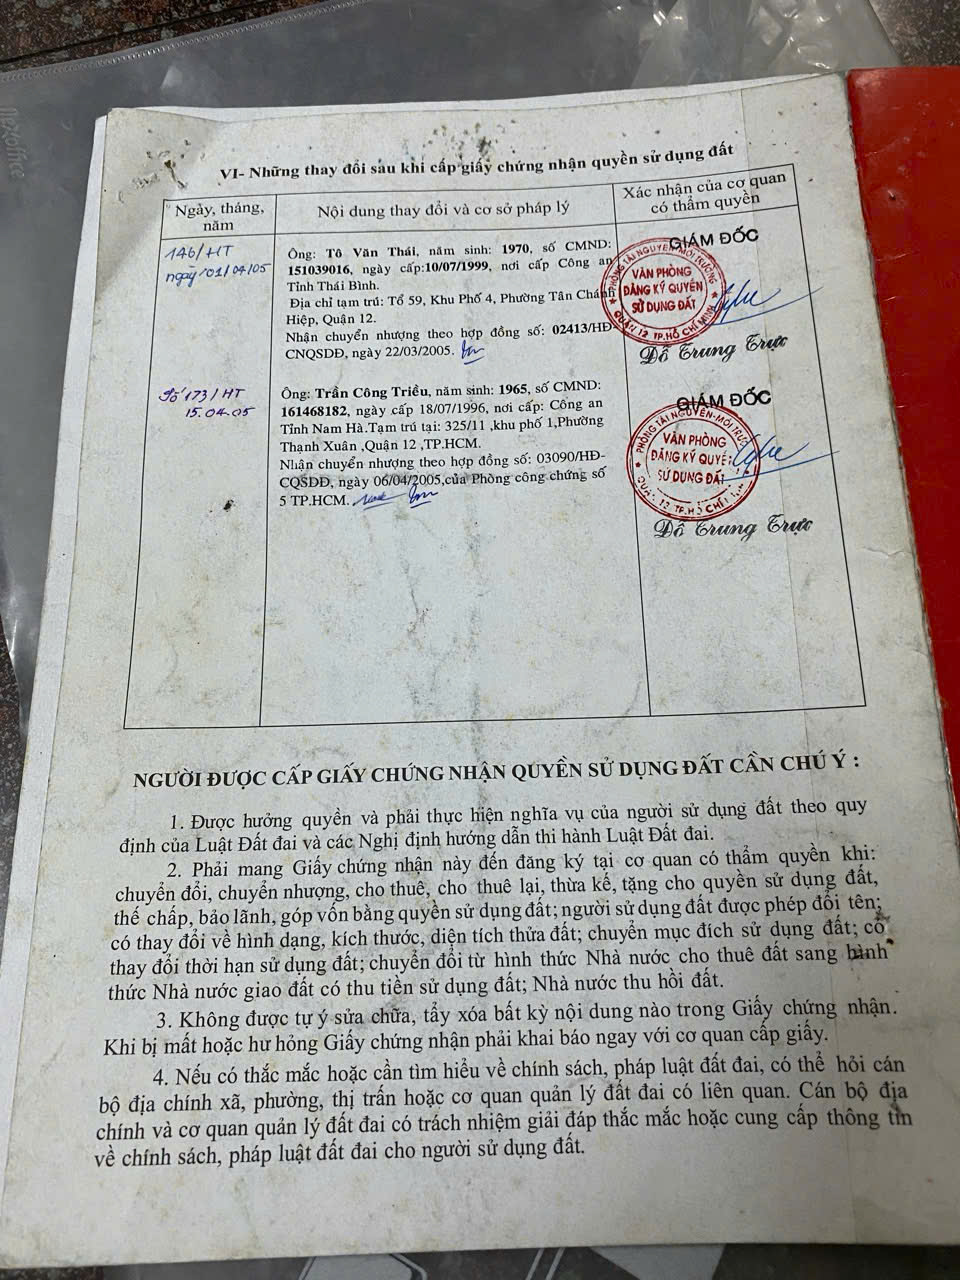 VI- Những thay đổi sau khi cấp giấy chứng nhận quyền sử dụng đất
Ngày, tháng,
năm
Nội dung thay đổi và cơ sở pháp lý
Xác nhận của cơ quan
có thẩm quyền
146/HT
ngày 01/04/05
Ông: Tô Văn Thái, năm sinh: 1970, số CMND:
151039016, ngày cấp:10/07/1999, nơi cấp Công an
Tỉnh Thái Bình.
Địa chỉ tạm trú: Tổ 59, Khu Phố 4, Phường Tân Chánh
Hiệp, Quận 12.
Nhận chuyển nhượng theo hợp đồng số: 02413/HĐ-
CNQSDĐ, ngày 22/03/2005.
GIÁM ĐỐC
PHÒNG TÀI NGUYÊN-MÔI TRƯỜNG
VĂN PHÒNG
ĐĂNG KÝ QUYỀN
SỬ DỤNG ĐẤT
QUẬN 12 TP.HỒ CHÍ MINH
Đỗ Trung Trực
Số 173/HT
15.04.05
Ông: Trần Công Triều, năm sinh: 1965, số CMND:
161468182, ngày cấp 18/07/1996, nơi cấp: Công an
Tỉnh Nam Hà.Tạm trú tại: 325/11 ,khu phố 1,Phường
Thạnh Xuân ,Quận 12 ,TP.HCM.
Nhận chuyển nhượng theo hợp đồng số: 03090/HĐ-
CQSDĐ, ngày 06/04/2005,của Phòng công chứng số
5 TP.HCM.
GIÁM ĐỐC
PHÒNG TÀI NGUYÊN-MÔI TRƯỜNG
VĂN PHÒNG
ĐĂNG KÝ QUYỀN
SỬ DỤNG ĐẤT
QUẬN 12 TP.HỒ CHÍ MINH
Đỗ Trung Trực
NGƯỜI ĐƯỢC CẤP GIẤY CHỨNG NHẬN QUYỀN SỬ DỤNG ĐẤT CẦN CHÚ Ý :
1. Được hưởng quyền và phải thực hiện nghĩa vụ của người sử dụng đất theo quy
định của Luật Đất đai và các Nghị định hướng dẫn thi hành Luật Đất đai.
2. Phải mang Giấy chứng nhận này đến đăng ký tại cơ quan có thẩm quyền khi:
chuyển đổi, chuyển nhượng, cho thuê, cho thuê lại, thừa kế, tặng cho quyền sử dụng đất,
thế chấp, bảo lãnh, góp vốn bằng quyền sử dụng đất; người sử dụng đất được phép đổi tên;
có thay đổi về hình dạng, kích thước, diện tích thửa đất; chuyển mục đích sử dụng đất; có
thay đổi thời hạn sử dụng đất; chuyển đổi từ hình thức Nhà nước cho thuê đất sang hình
thức Nhà nước giao đất có thu tiền sử dụng đất; Nhà nước thu hồi đất.
3. Không được tự ý sửa chữa, tẩy xóa bất kỳ nội dung nào trong Giấy chứng nhận.
Khi bị mất hoặc hư hỏng Giấy chứng nhận phải khai báo ngay với cơ quan cấp giấy.
4. Nếu có thắc mắc hoặc cần tìm hiểu về chính sách, pháp luật đất đai, có thể hỏi cán
bộ địa chính xã, phường, thị trấn hoặc cơ quan quản lý đất đai có liên quan. Cán bộ địa
chính và cơ quan quản lý đất đai có trách nhiệm giải đáp thắc mắc hoặc cung cấp thông tin
về chính sách, pháp luật đất đai cho người sử dụng đất.